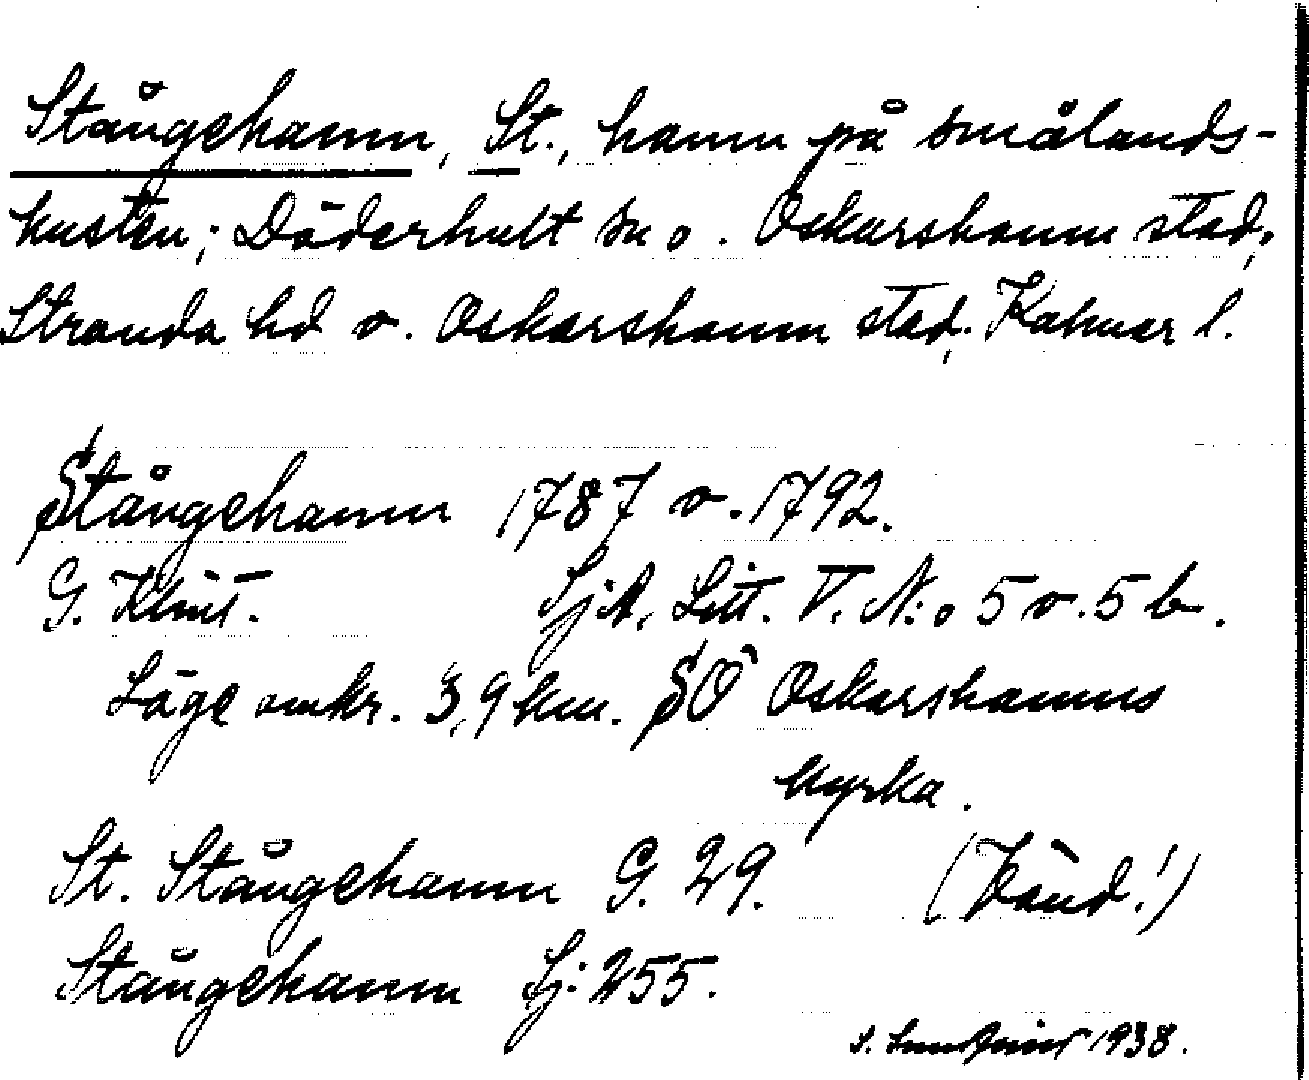 Stångehamn, St., hamn på smålands-
kusten; Döderhult sn o. Oskarshamn stad;
Stranda hd o. Oskarshamn stad, Kalmar l.
Stångehamn 1787 o. 1792.
G. Klint. SjA, Litt. V. N:o 5 o. 5 b.
Läge omkr. 3,9 km. SO Oskarshamns
kyrka.
St. Stångehamn G. 29. (Känd!)
Stångehamn Sj: 255.
1938.